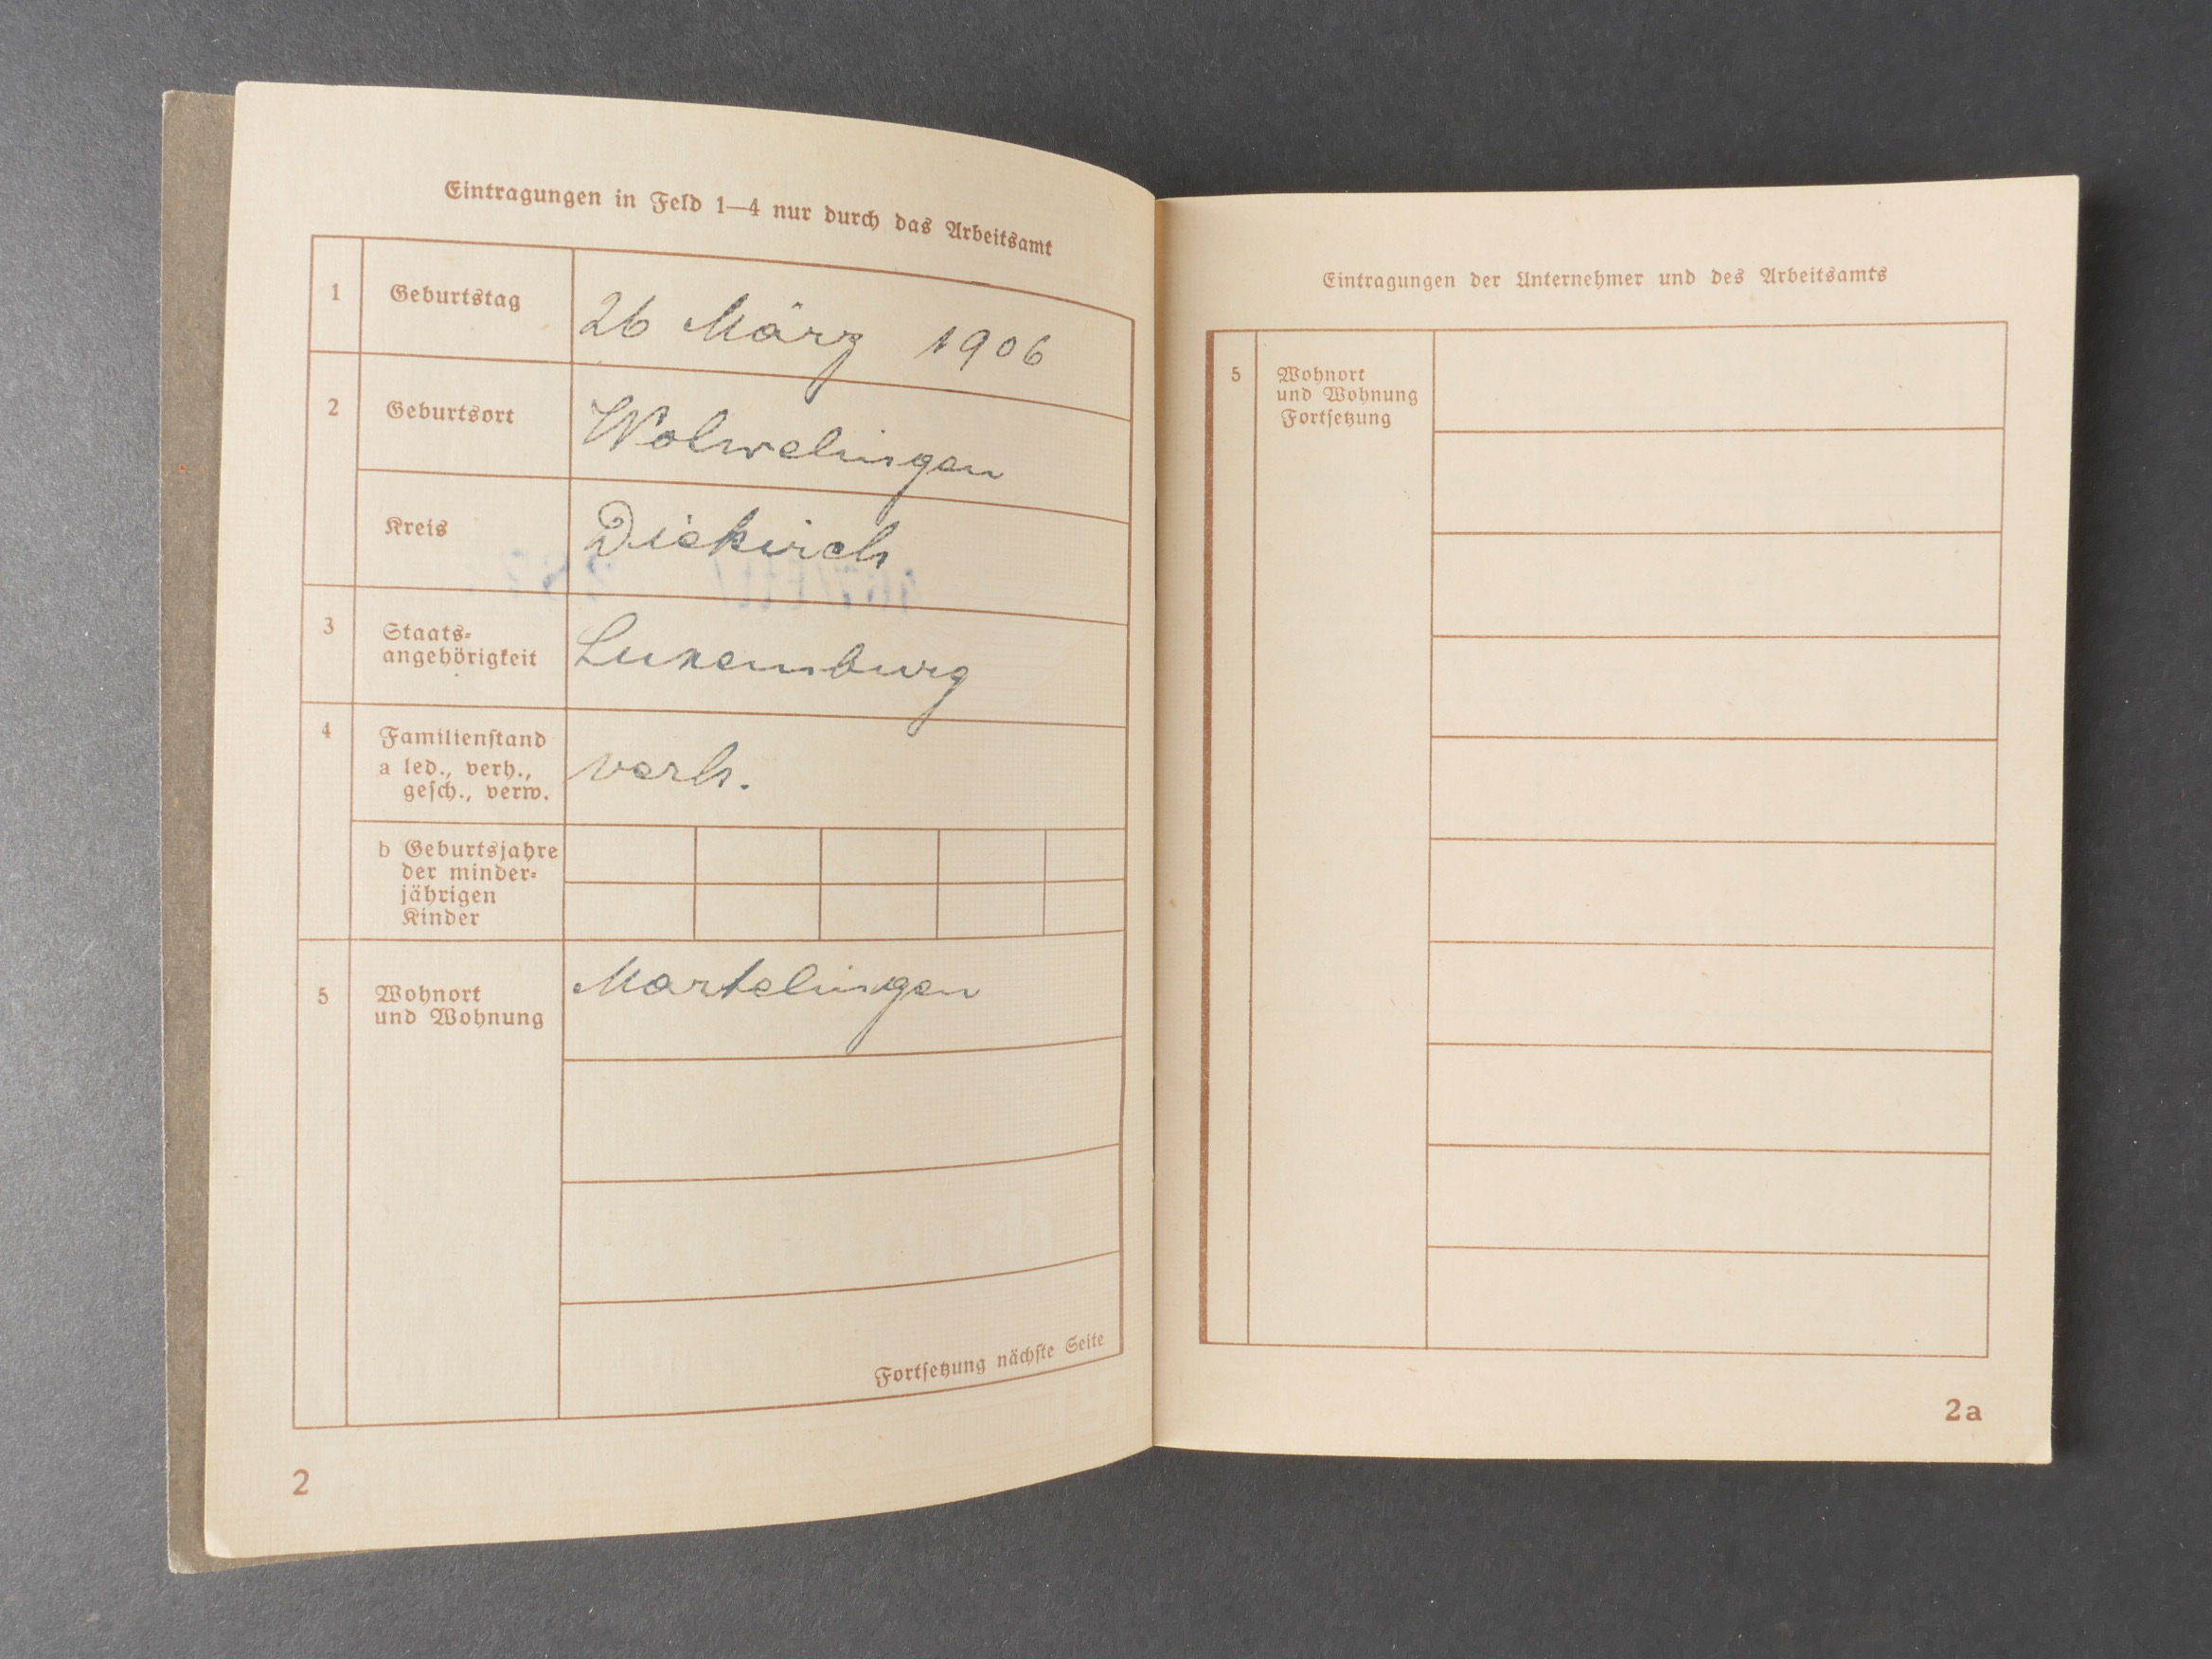 Eintragungen in Feld 1—4 nur durch das Arbeitsamt
1 Geburtstag 26 März 1906
2 Geburtsort Wolwelingen
Kreis Diekirch
3 Staats-
angehörigkeit Luxemburg
4 Familienstand
a led., verh.,
gesch., verw. verh.
b Geburtsjahre
der minder-
jährigen
Kinder
5 Wohnort
und Wohnung Martelingen
Fortsetzung nächste Seite
2
Eintragungen der Unternehmer und des Arbeitsamts
5 Wohnort
und Wohnung
Fortsetzung
2a